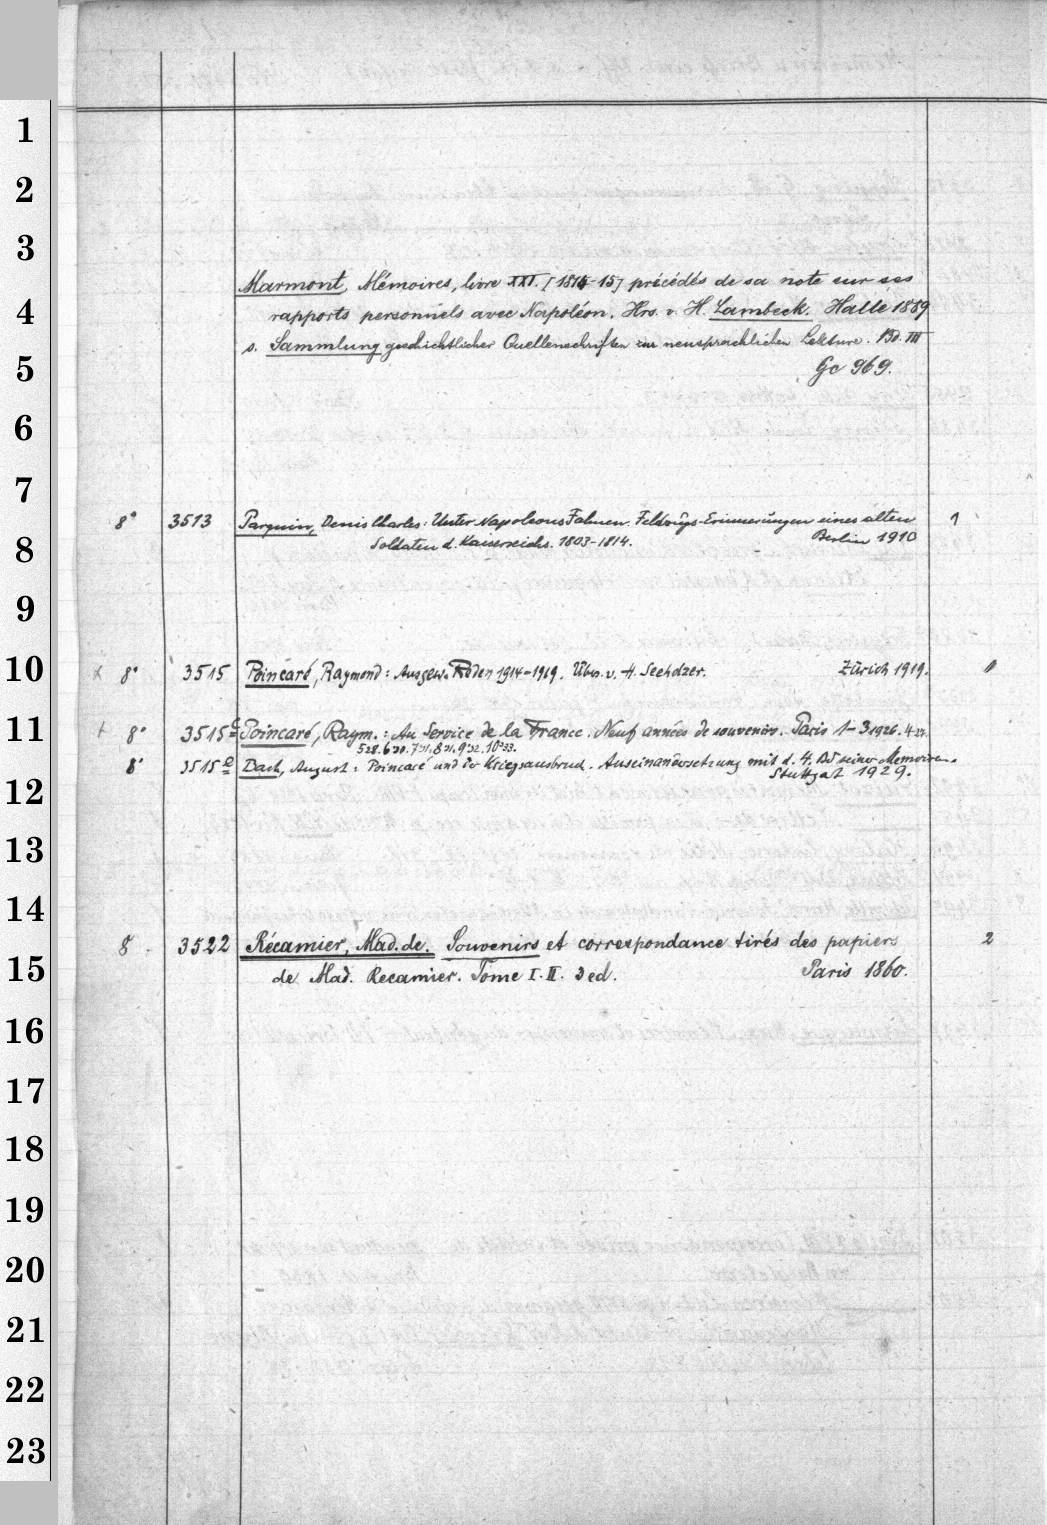 1
2
3
Marmont, Mémoires, livre XXI. [1814-15] précédés de sa note sur ses
4
rapports personnels avec Napoléon. Hrs. v. H. Lambeck. Halle 1889
s. Sammlung geschichtlicher Quellenschriften zur neusprachlichen Lektüre. Bd. III
5
Gc 969.
6
7
8° 3513 Parquin, Denis Charles: Unter Napoleons Fahnen. Feldzugs-Erinnerungen eines alten 1
8
Soldaten d. Kaiserreichs. 1803-1814. Berlin 1910
9
10
x 8° 3515 Poincaré, Raymond: Ausgew. Reden 1914-1919. Übers. v. H. Zürich 1919.
11
+ 8° 3515 c Poincaré, Raym.: Au Service de la France. Neuf années de souvenirs. Paris 1-3 1926. 4 27.
5 28. 6 30. 7 31. 8 31. 9 32. 10 33.
8° 3515 e Bach, August: Poincaré und der Kriegsausbruch. Auseinandersetzung mit d. 4. Bd seiner Memoiren.
12
Stuttgart 1929.
13
14
8° 3522 Récamier, Mad. de. Souvenirs et correspondance tirés des papiers 2
15
de Mad. Recamier. Tome I. II. 3 ed. Paris 1860.
16
17
18
19
20
21
22
23